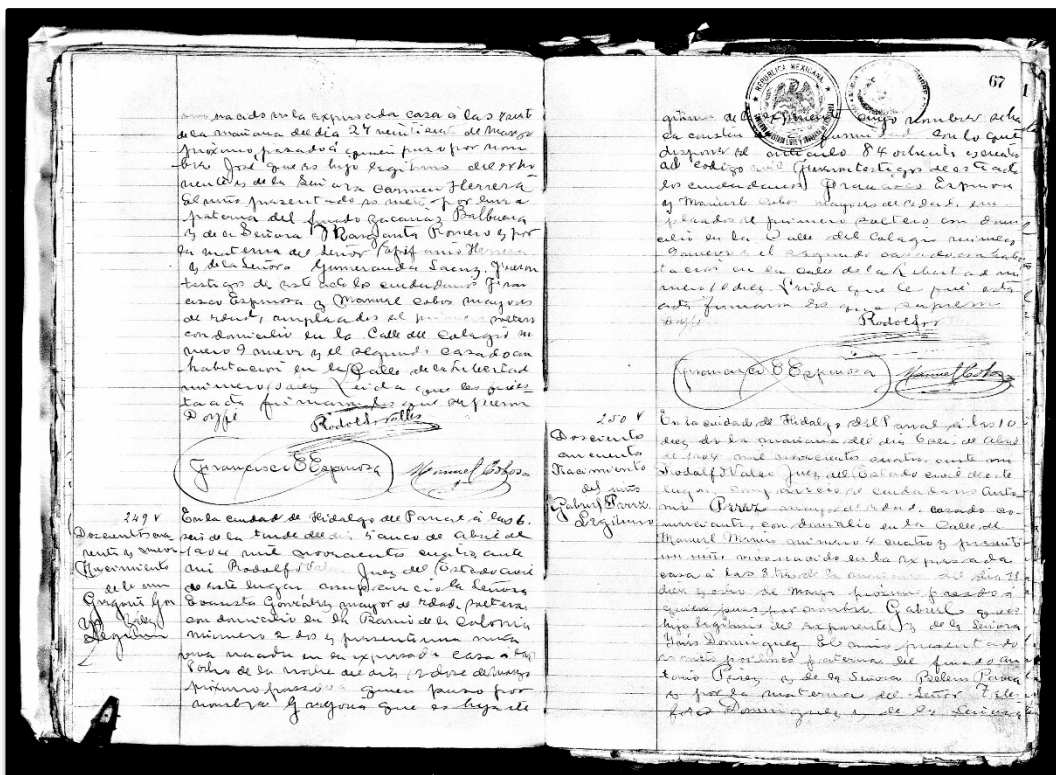 nacido en la expresada casa á las
de la mañana del dia 27 veintisiete de Marzo
próximo pasado á quien puso por nom
bre José que es hijo legitimo del expo
nente y de la Señora Carmen Herrera
El niño presentado es nieto por linea
paterna del finado Zacarías Balbuena
y de la Señora Margarita Romero y por
la materna del Señor Epifanio Herrera
y de la Señora Gumercinda Saenz. Fueron
testigos de este acto los ciudadanos Fran
cisco Espinosa y Manuel Cobos mayores
de edad, empleados el primero soltero
con domicilio en la Calle del Colegio nú
mero 9 nueve y el segundo casado con
habitación en la Calle de la Libertad
número 10 diez Leida que les fué es
ta acta firmaron los que supieron
Doy fé
Rodolfo Valles
Francisco E Espinosa Manuel Cobos
249
Doscientos cua
renta y nueve
Nacimiento
de la niña
Gregoria Gon
zalez
En la ciudad de Hidalgo del Parral á las 6
seis de la tarde del dia 5 cinco de Abril de
1904 mil novecientos cuatro ante
mi Rodolfo Valles Juez del Estado civil
de este lugar compareció la Señora
Evarista González mayor de edad soltera
con domicilio en la Barrio de la Colonia
número 2 dos y presentó una niña
viva nacida en la expresada casa á las
8 ocho de la noche del dia 12 doce de Marzo
próximo pasado á quien puso por
nombre Gregoria que es hija de
67
REPUBLICA MEXICANA
cuyo nombre se ha
ce constar con lo que
dispone el artículo 84 ochenta y cuatro
del Código civil Fueron testigos de este acto
los ciudadanos Francisco Espinosa
y Manuel Cobos mayores de edad, em
pleados el primero soltero con domi
cilio en la Calle del Colegio número
9 nueve y el segundo casado con habi
tación en la calle de la Libertad nú
mero 10 diez. Leida que les fué esta
acta firmaron los que supieron
Doy fé
Rodolfo
Francisco E Espinosa Manuel Cobos
250
Doscientos
cincuenta
Nacimiento
del niño
Gabriel Perez
Legitimo
En la ciudad de Hidalgo del Parral á las 10
diez de la mañana del dia de Abril
de 1904 mil novecientos cuatro, ante mi
Rodolfo Valles Juez del Estado civil de este
lugar, compareció el ciudadano Anto
nio Perez mayor de edad casado co
merciante, con domicilio en la Calle de
Manuel número 4 cuatro y presentó
un niño vivo nacido en la expresada
casa á las 3 tres de la mañana del dia 18
diez y ocho de Marzo próximo pasado á
quien puso por nombre Gabriel que es
hijo legitimo del exponente y de la Señora
Inés Dominguez El niño presentado
es nieto por linea paterna del finado An
tonio Perez y de la Señora Belem
y por la materna del Señor Teles
foro Dominguez y de la Señora